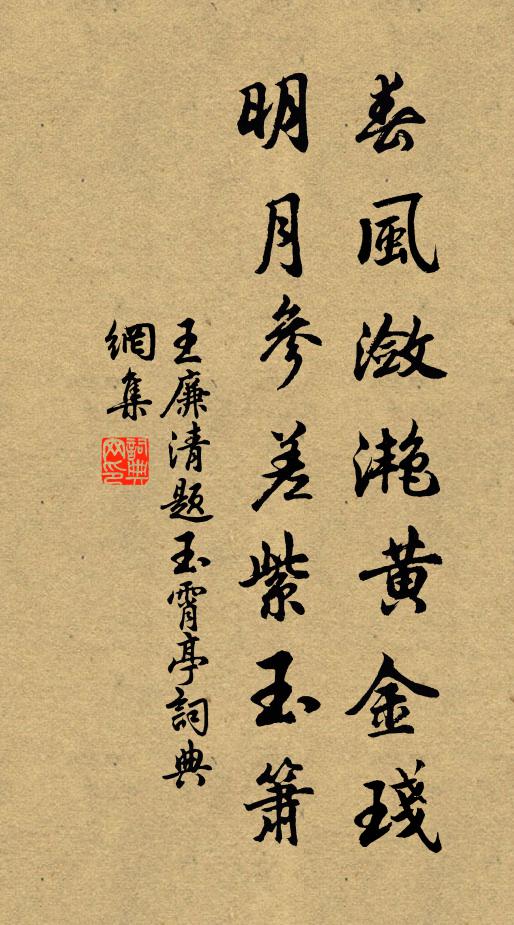 春風瀲灔黃金琖
明月參差紫玉簫
王廉清題玉霄亭詞典
網集
詞典網印